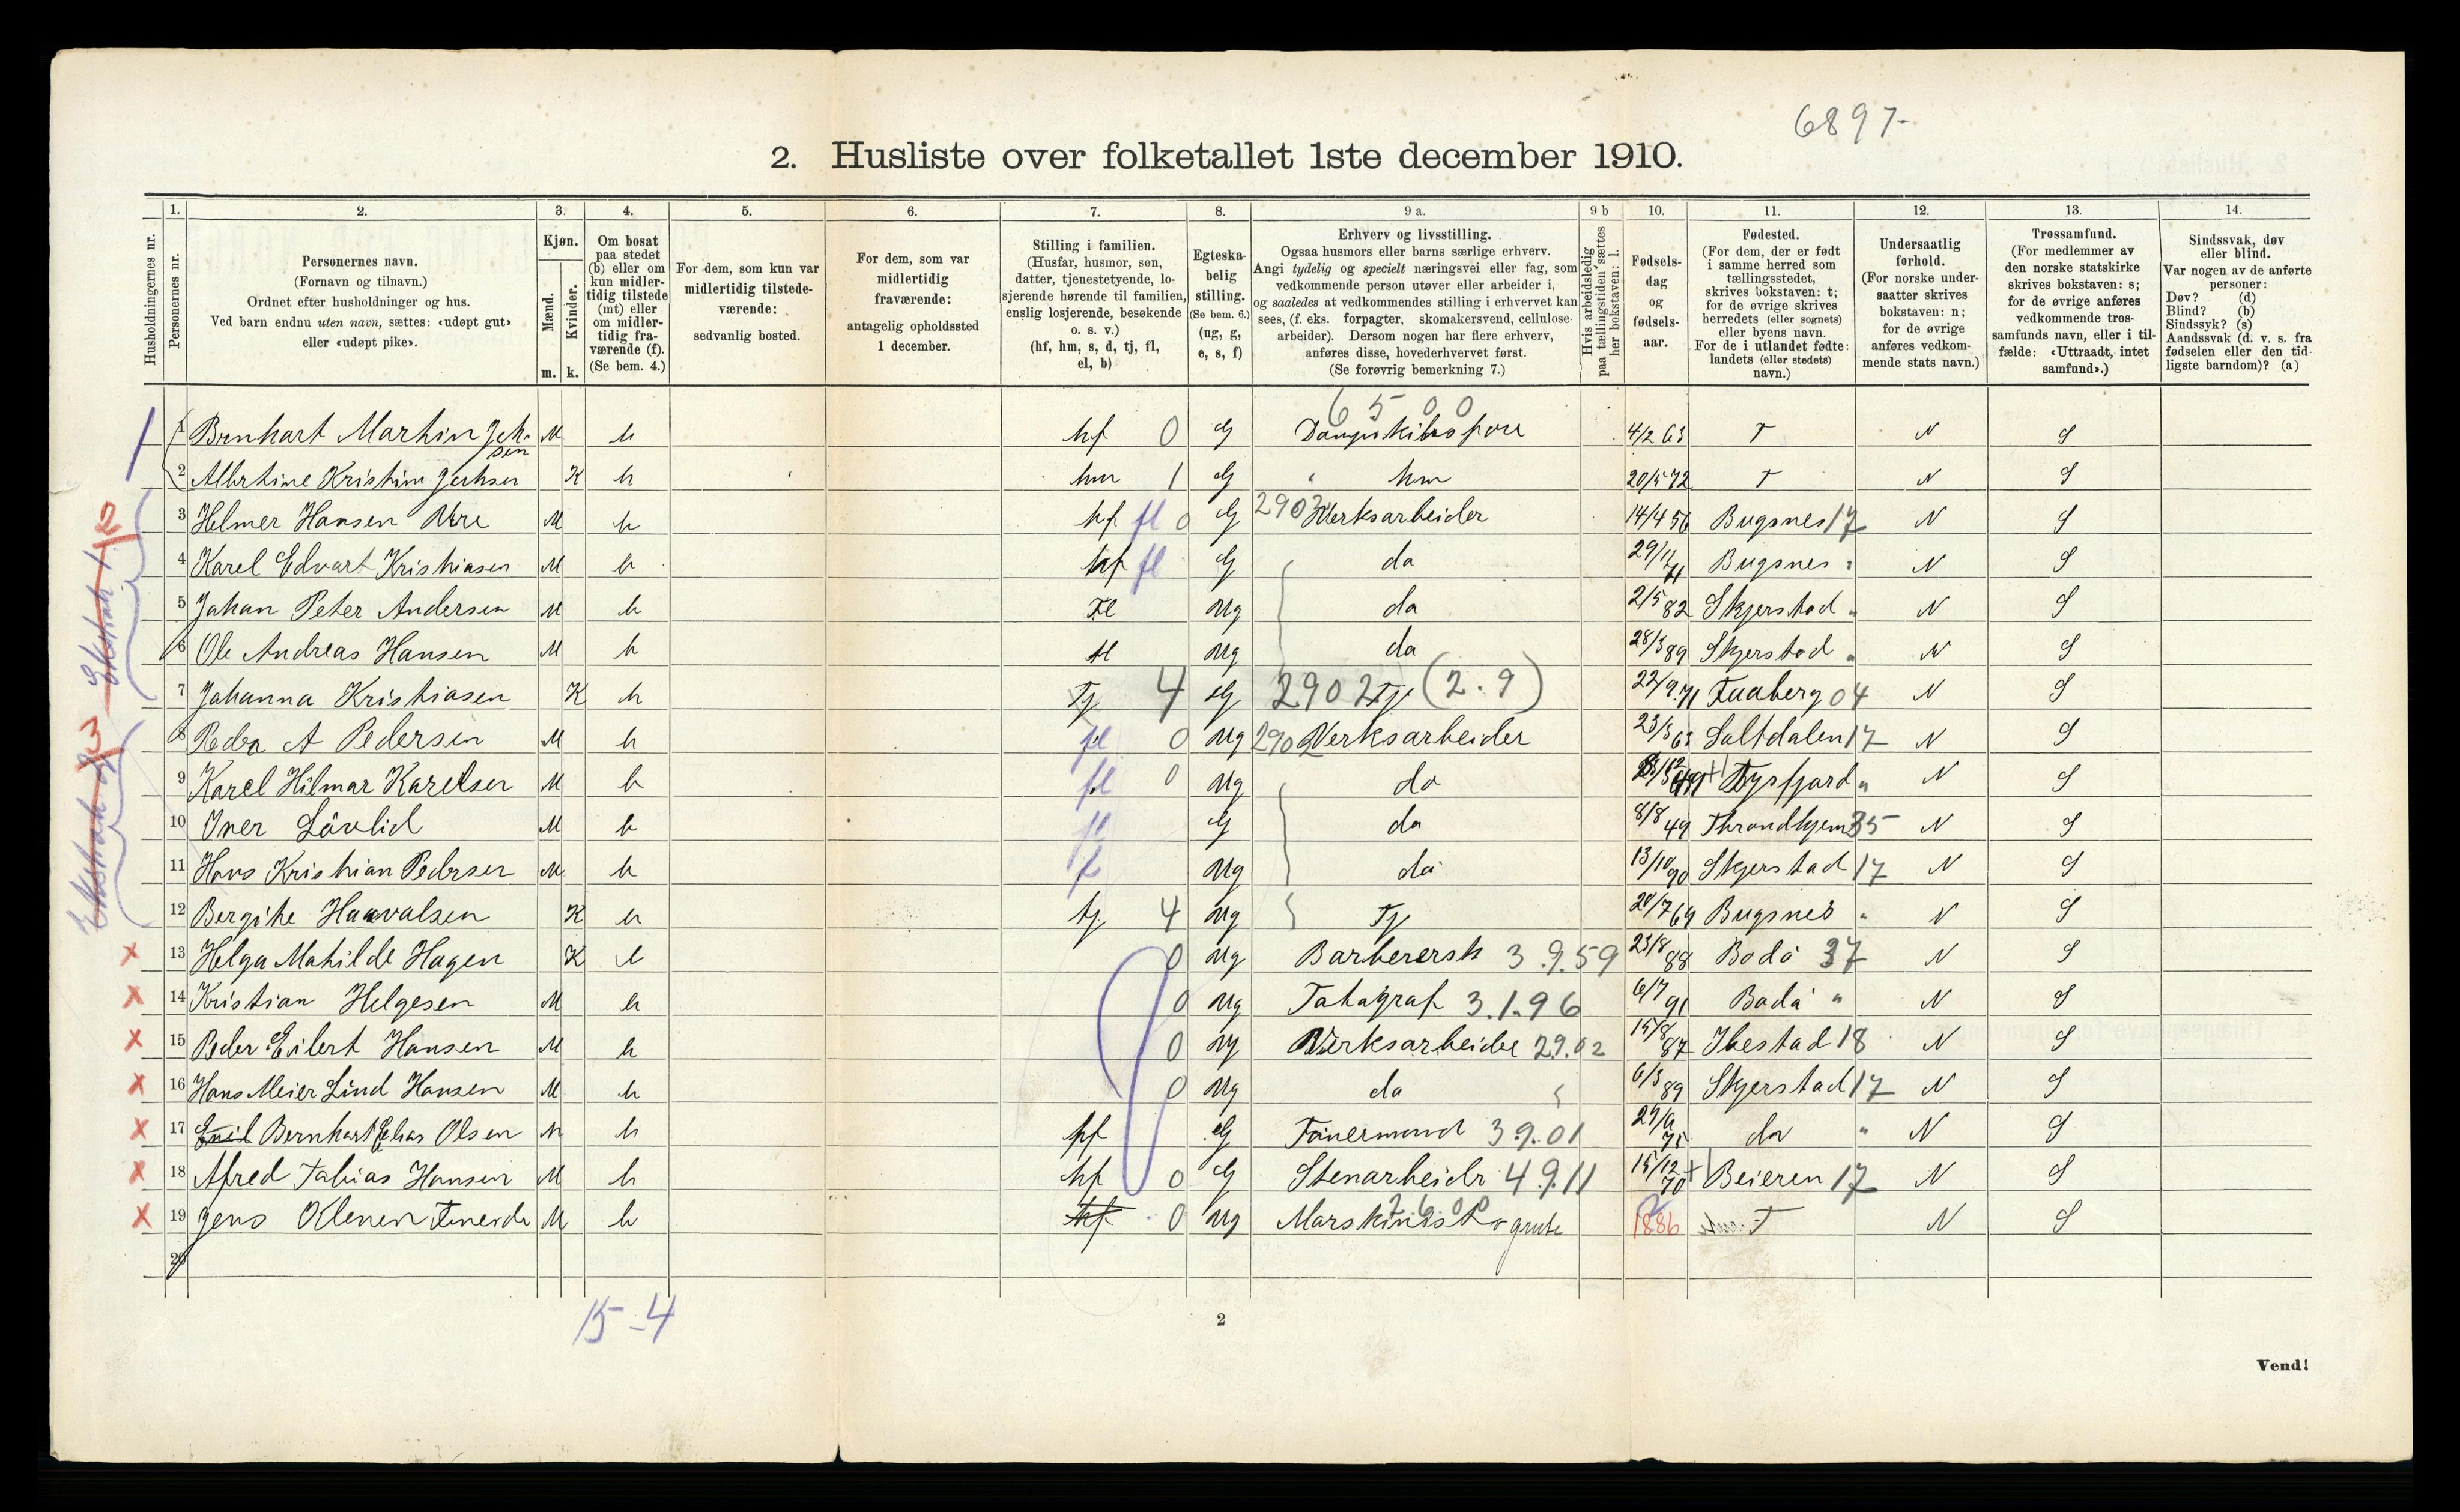 6897-
2. Husliste over folketallet 1ste december 1910.
Husholdningernes nr.
1. Personernes nr.
2. Personernes navn.
(Fornavn og tilnavn.)
Ordnet efter husholdninger og hus.
Ved barn endnu uten navn, sættes: «udøpt gut»
eller «udøpt pike».
3. Kjøn.
Mænd. m.
Kvinder. k.
4. Om bosat
paa stedet
(b) eller om
kun midler-
tidig tilstede
(mt) eller
om midler-
tidig fra-
værende (f).
(Se bem. 4.)
5. For dem, som kun var
midlertidig tilstede-
værende:
sedvanlig bosted.
6. For dem, som var
midlertidig
fraværende:
antagelig opholdssted
1 december.
7. Stilling i familien.
(Husfar, husmor, søn,
datter, tjenestetyende, lo-
sjerende hørende til familien,
enslig losjerende, besøkende
o. s. v.)
(hf, hm, s, d, tj, fl,
el, b)
8. Egteska-
belig
stilling.
(Se bem. 6.)
(ug, g,
e, s, f)
9 a. Erhverv og livsstilling.
Ogsaa husmors eller barns særlige erhverv.
Angi tydelig og specielt næringsvei eller fag, som
vedkommende person utøver eller arbeider i,
og saaledes at vedkommendes stilling i erhvervet kan
sees, (f. eks. forpagter, skomakersvend, cellulose-
arbeider). Dersom nogen har flere erhverv,
anføres disse, hovederhvervet først.
(Se forøvrig bemerkning 7.)
9 b Hvis arbeidsledig
paa tællingstiden sættes
her bokstaven: l.
10. Fødsels-
dag
og
fødsels-
aar.
11. Fødested.
(For dem, der er født
i samme herred som
tællingsstedet,
skrives bokstaven: t;
for de øvrige skrives
herredets (eller sognets)
eller byens navn.
For de i utlandet fødte:
landets (eller stedets)
navn.)
12. Undersaatlig
forhold.
(For norske under-
saatter skrives
bokstaven: n;
for de øvrige
anføres vedkom-
mende stats navn.)
13. Trossamfund.
(For medlemmer av
den norske statskirke
skrives bokstaven: s;
for de øvrige anføres
vedkommende tros-
samfunds navn, eller i til-
fælde: «Uttraadt, intet
samfund».)
14. Sindssvak, døv
eller blind.
Var nogen av de anførte
personer:
Døv? (d)
Blind? (b)
Sindssyk? (s)
Aandssvak (d. v. s. fra
fødselen eller den tid-
ligste barndom)? (a)
6500
1 Brnhart Martin M b hf 0 G 4/2 63 T N S
2 Albrtine Kristine K b hm 1 G " hm 20/5 72 T N S
3 Helmer Hansen M b hf fl 0 G 2903 Verksarbeider 14/4 56 Bugsnes 17 N S
4 Karel Edvart Kristiasen M b hf fl G da 29/11 71 Bugsnes " N S
5 Johan Peter Andersen M b Fl Ug da 2/5 82 Skjerstad " N S
6 Ole Andreas Hansen M b fl Ug da 28/3 89 Skjerstad " N S
7 Johanna Kristiasen K b Tj 4 G 2902 Tj (2.9) 22/9 71 Faaberg 04 N S
8 Peder A Pedersen M b fl 0 Ug 2902 Verksarbeider 23/3 63 Saltdalen 17 N S
9 Karel Hilmar Karelsen M b fl 0 Ug da Tysfjord " N S
10 Iver Lövlid M b fl G da 8/8 49 Throndhjem 35 N S
11 Hans Kristian Pedrsen M b f Ug da 13/10 90 Skjerstad 17 N S
12 Bergite Haavalsen K b tj 4 Ug Tj 28/7 69 Bugsnes " N S
13 Helga Mathilde Hagen K b 0 Ug Barberersk 3.9.59 23/8 88 Bodö 37 N S
14 Kristian Helgesen M b 0 Ug Fatagraf 3.1.96 6/7 91 Bodö " N S
15 Peder Eilert Hansen M b 0 Ug Verksarbeider 29.02 15/8 87 Ibestad 18 N S
16 Hans Meier Lind Hansen M b 0 Ug da " 6/3 89 Skjerstad 17 N S
17 Emil Bernhart Elias Olsen M b hf G 39.01 da " N S
18 Alfred Tobias Hansen M b hf 0 G Stenarbeidr 49.11 15/12 70 Beieren 17 N S
19 Jens Olenen Fineide M b hf 0 Ug Marskinist v grube 2600 1886 T N S
20
15-4
2
Vend!